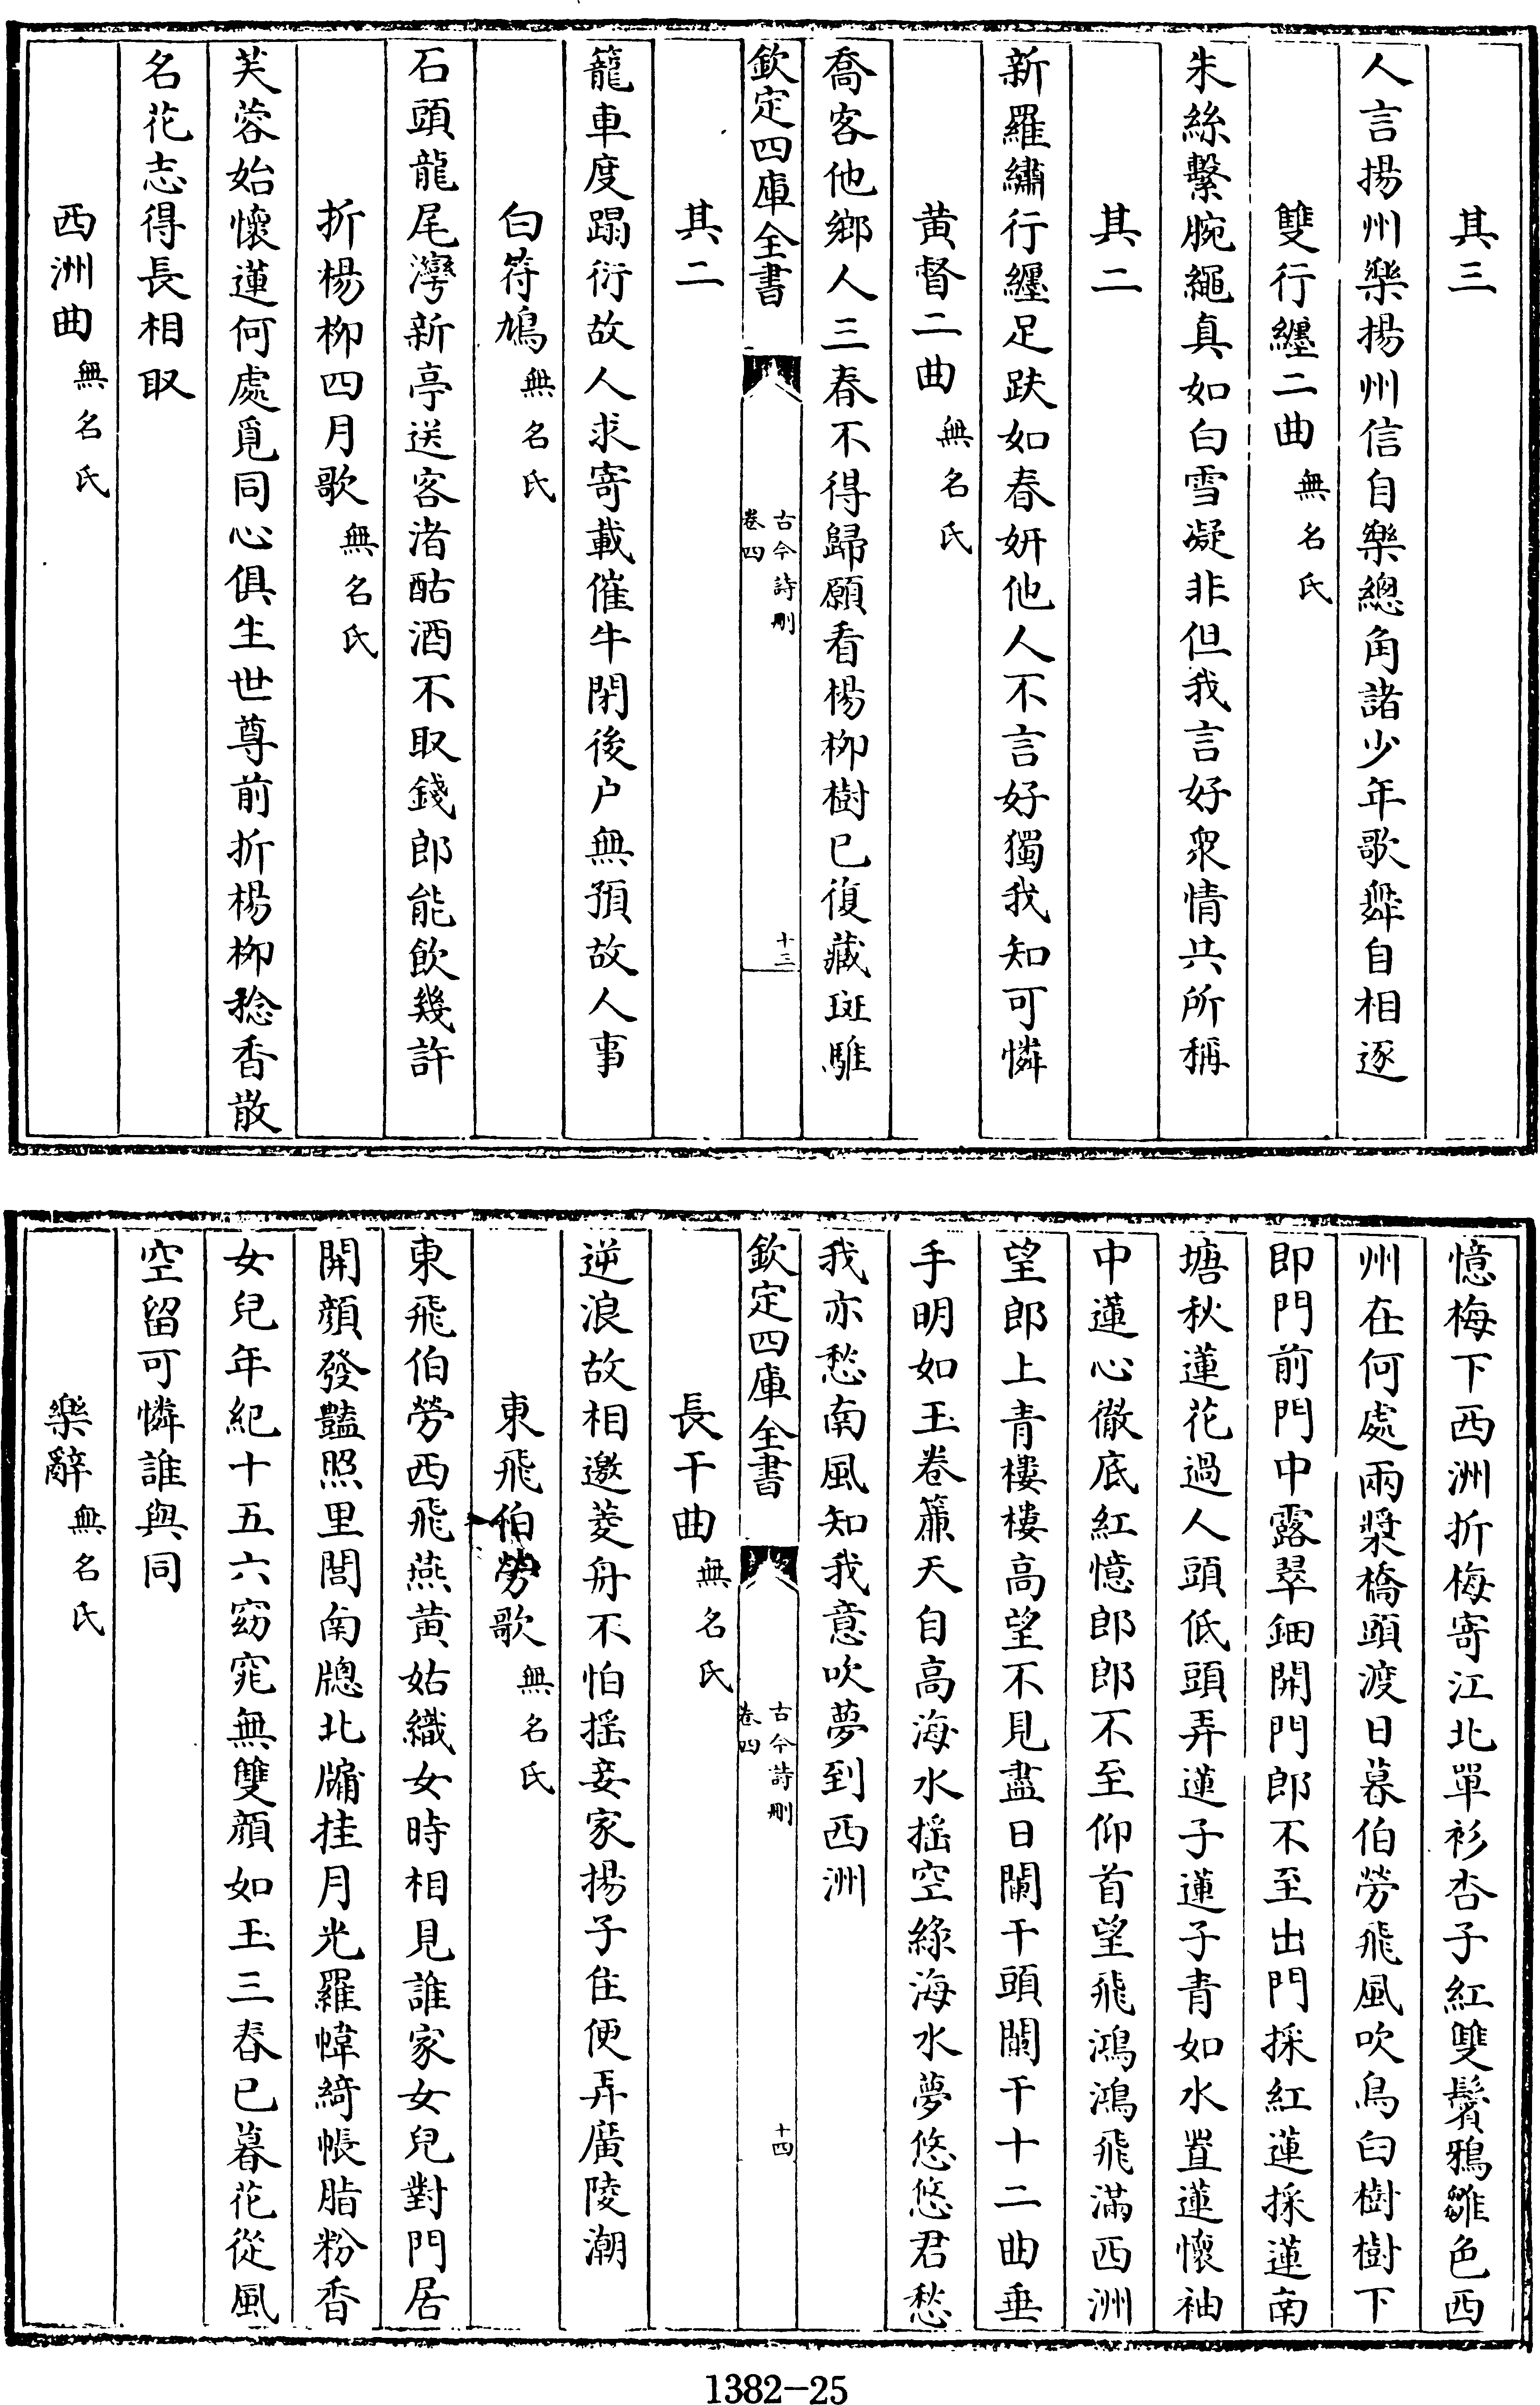 其三
人言揚州樂揚州信自樂總角諸少年歌舞自相逐
雙行纏二曲無名氏
朱絲繫腕繩真如白雪凝非但我言好衆情共所稱
其二
新羅繡行纏足趺如春妍他人不言好獨我知可憐
黄督二曲無名氏
喬客他鄉人三春不得歸願看楊柳樹已復藏斑騅
欽定四庫全書
古今詩刪
卷四
十三
其二
籠車度蹋衍故人求寄載催牛閉後户無預故人事
白符鳩無名氏
石頭龍尾灣新亭送客渚酤酒不取錢郎能飲幾許
折楊柳四月歌無名氏
芙蓉始懷蓮何處覓同心俱生世尊前折楊柳稔香散
名花志得長相取
西洲曲無名氏
憶梅下西洲折梅寄江北單衫杏子紅雙鬢鴉雛色西
州在何處兩槳橋頭渡日暮伯勞飛風吹烏臼樹樹下
即門前門中露翠鈿開門郎不至出門採紅蓮採蓮南
塘秋蓮花過人頭低頭弄蓮子蓮子青如水置蓮懷袖
中蓮心徹底紅憶郎郎不至仰首望飛鴻鴻飛滿西洲
望郎上青樓樓高望不見盡日闌干頭闌干十二曲垂
手明如玉卷簾天自高海水揺空綠海水夢悠悠君愁
我亦愁南風知我意吹夢到西洲
欽定四庫全書
古今詩刪
卷四
十四
長干曲無名氏
逆浪故相邀菱舟不怕揺妾家揚子住便弄廣陵潮
東飛伯勞歌無名氏
東飛伯勞西飛燕黄姑織女時相見誰家女兒對門居
開顔發豔照里閭南牕北牖挂月光羅幃綺帳脂粉香
女兒年紀十五六窈窕無雙顔如玉三春已暮花從風
空留可憐誰與同
樂辭無名氏
1382-25